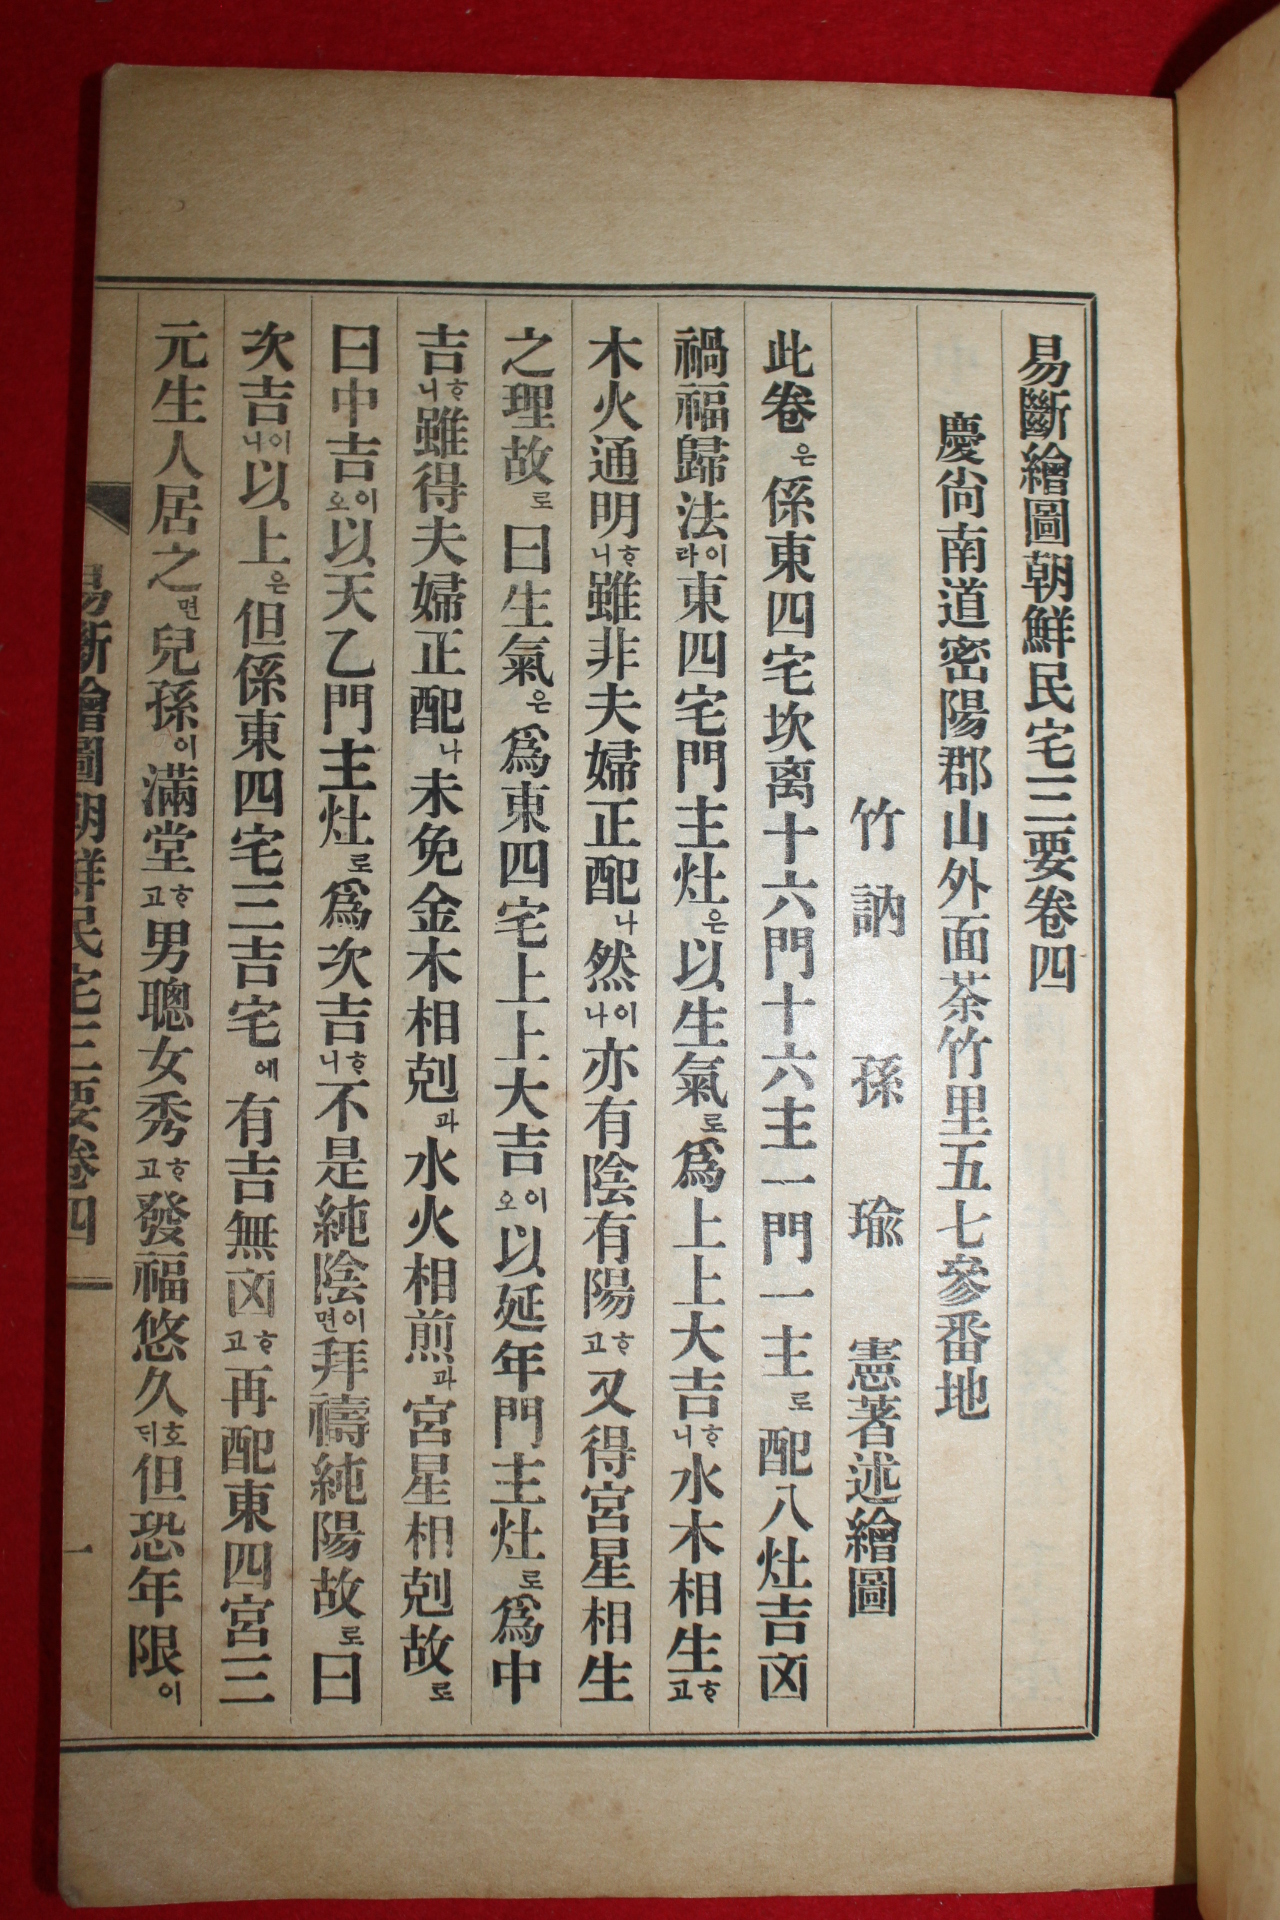 易斷繪圖朝鮮民宅三要卷四
慶尙南道密陽郡山外面茶竹里五七參番地
竹訥 孫瑜憲著述繪圖
此卷은係東四宅坎离十六門十六主一門一主로配八灶吉凶
禍福歸法이라東四宅門主灶은以生氣로爲上上大吉하니水木相生하고
木火通明하니雖非夫婦正配나然이나亦有陰有陽하고又得宮星相生
之理故로曰生氣은爲東四宅上上大吉이오以延年門主灶로爲中
吉하니雖得夫婦正配나未免金木相剋과水火相煎과宮星相剋故로
曰中吉이오以天乙門主灶로爲次吉하니不是純陰이면拜禱純陽故로曰
次吉이니以上은但係東四宅三吉宅에有吉無凶하고再配東四宮三
元生人居之면兒孫이滿堂하고男聰女秀하고發福悠久호되但恐年限이
易斷繪圖朝鮮民宅三要卷四 一